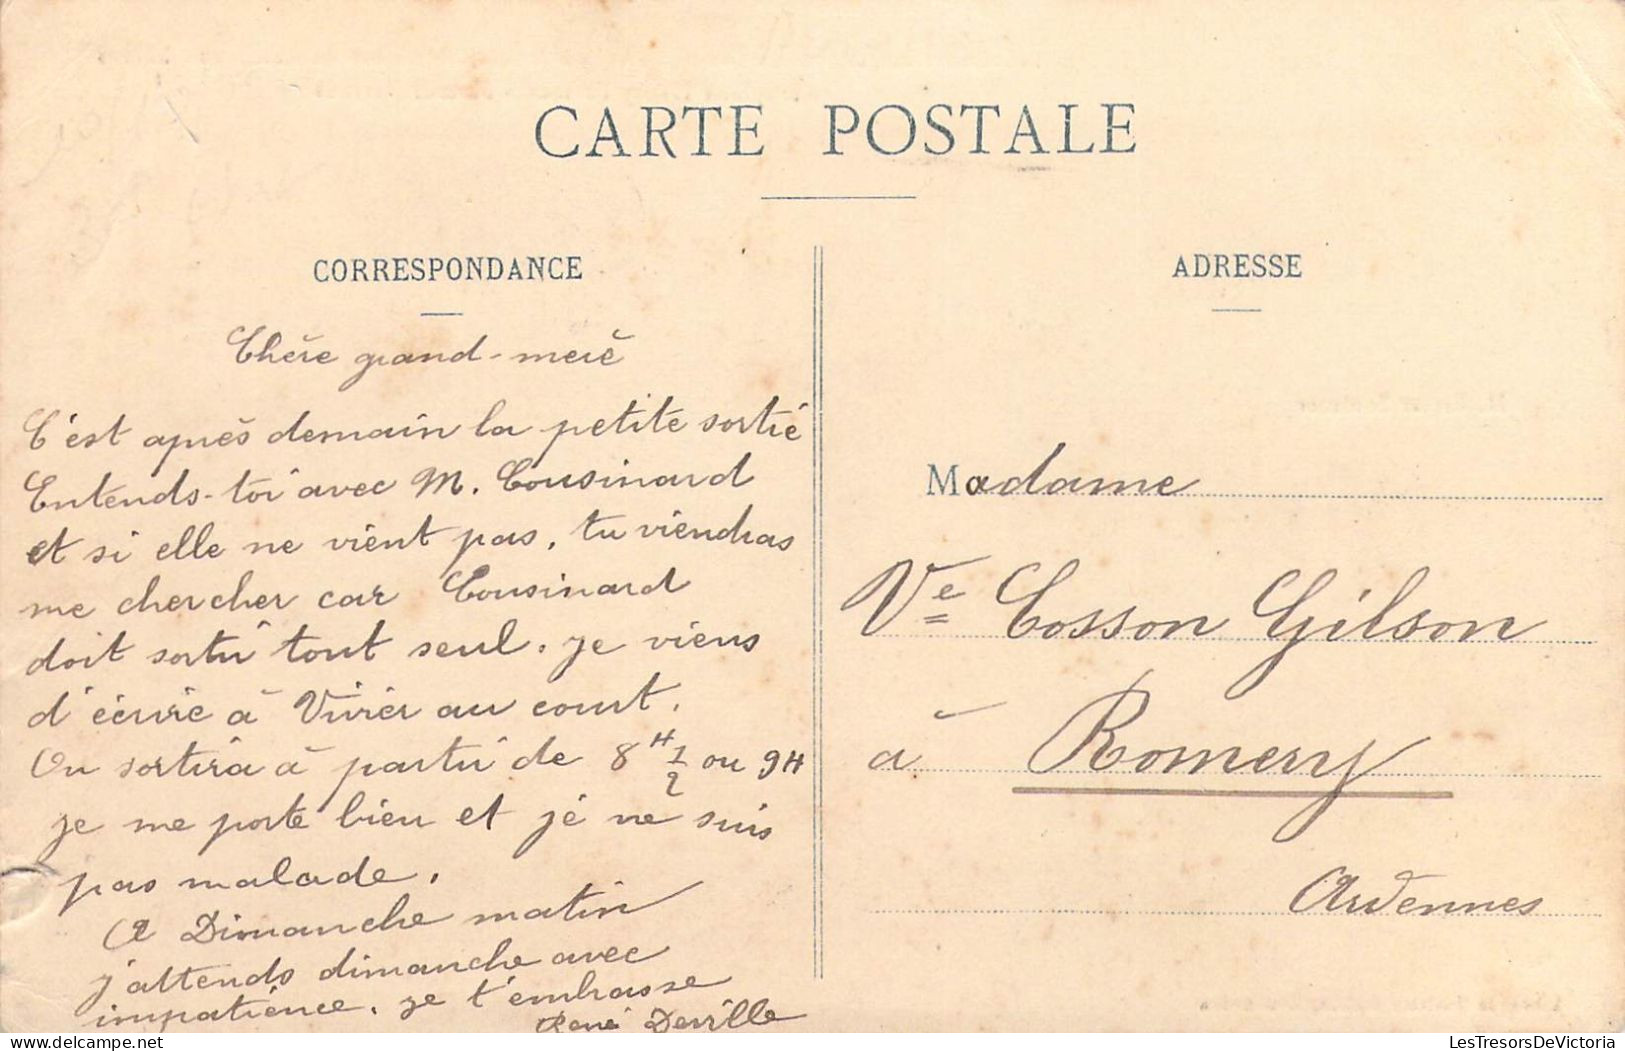 CARTE POSTALE
CORRESPONDANCE
Chère grand-merè
C'est après demain la petite sortie
Entends-toi avec M. Cousinard
et si elle ne vient pas, tu viendras
me chercher car Cousinard
doit sortir tout seul. Je viens
d'écrire à Vivier au court.
On sortira à partir de 8H 1/2 ou 9H
Je me porte bien et je ne suis
pas malade.
A Dimanche matin
j'attends dimanche avec
impatience. Je t'embrasse
René Deville
ADRESSE
Madame
Ve Cosson Gilson
à Romery
Ardennes
LesTresorsDeVictoria